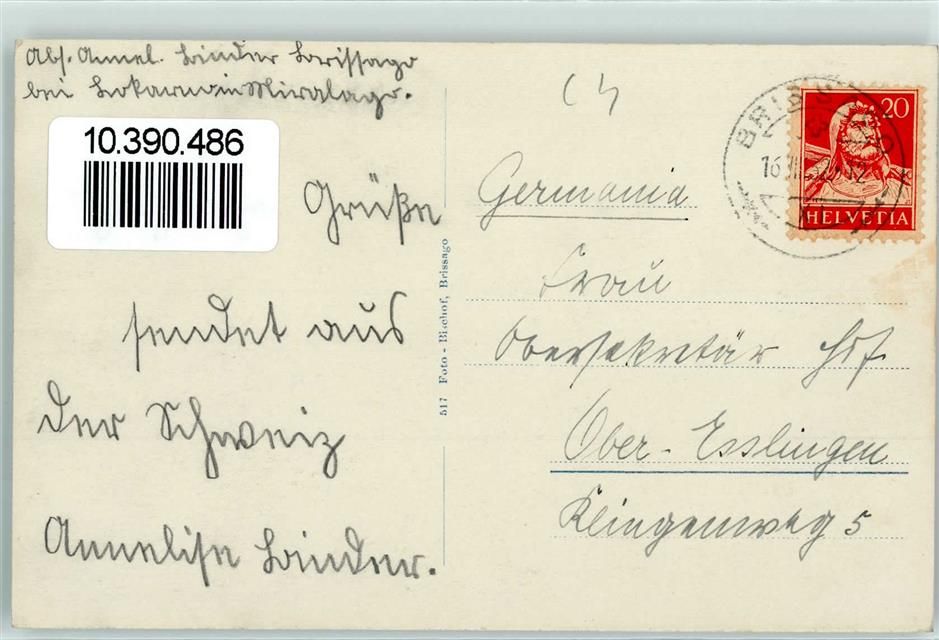 Abs. Annel. Linder Brissago
bei Lokarno in Miralago.
10.390.486
Grüße
sendet aus
der Schweiz
Annelise Linder.
517 Foto - Bischof, Brissago
20
HELVETIA
Germania
Frau
Obersekretär
Ober-Esslingen
Klingenweg 5